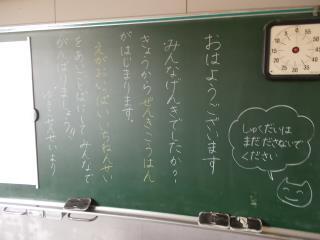 おはようございます
みんなげんきでしたか?
きょうからぜんきこうはん
がはじまります。
えがおいっぱいいちねんせい
をあいことばにしてみんなで
がんばりましょう!!
せんせいより
しゅくだいは
まだださないで
ください